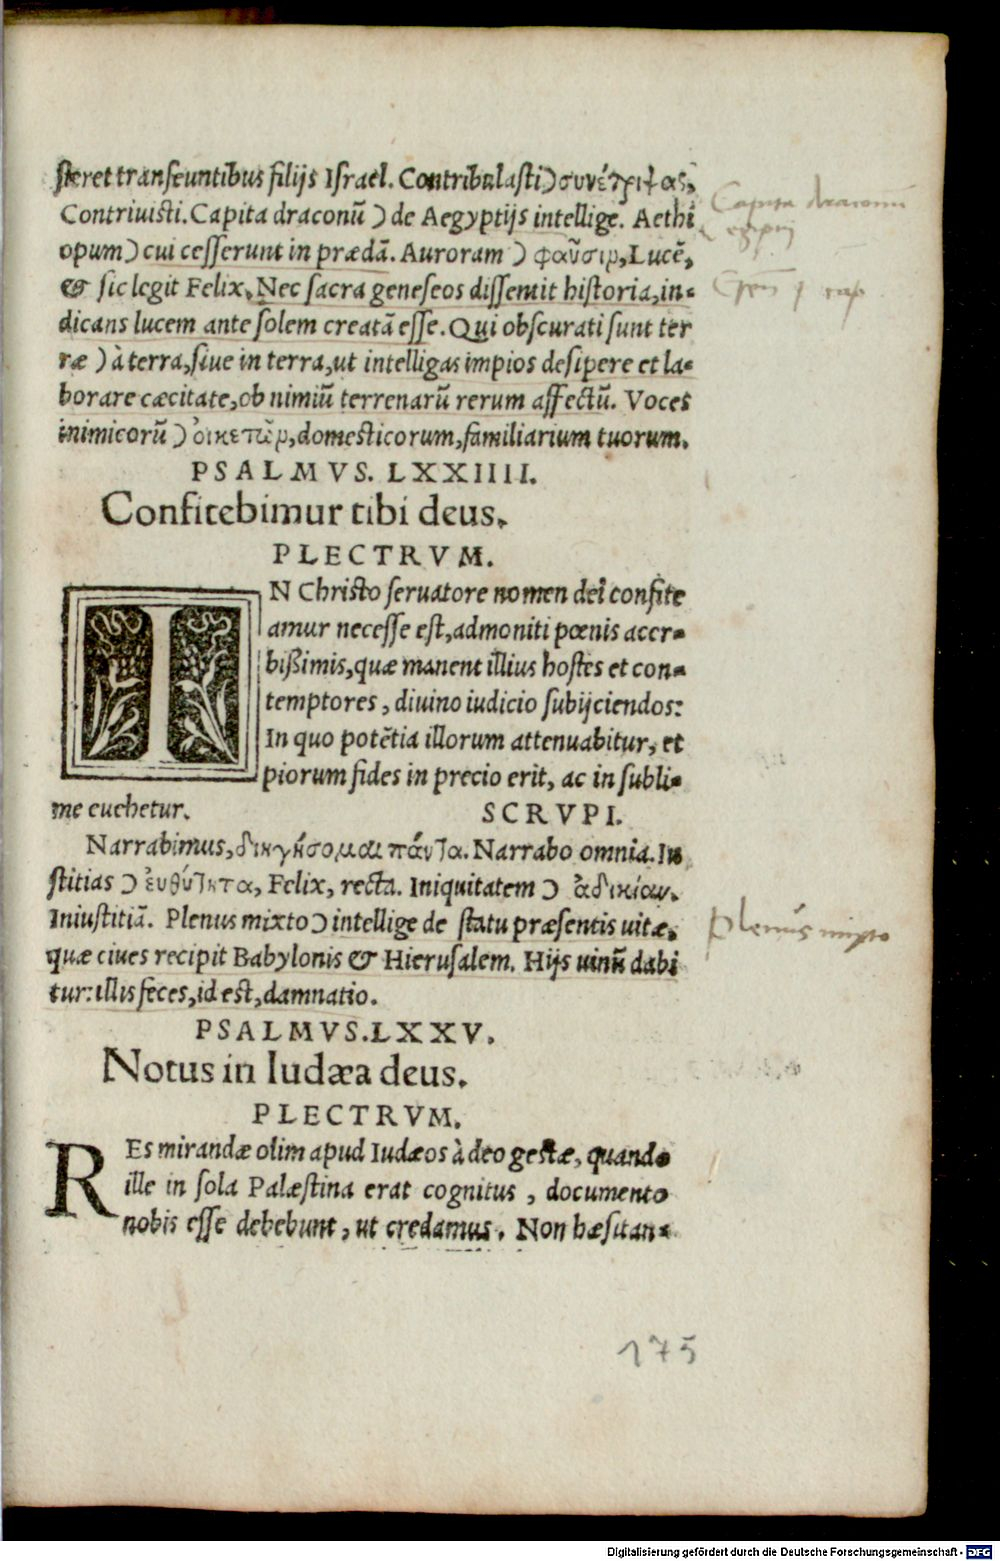 steret transeuntibus filijs Israel. Contribulasti) συνέτριψας,
Contriuisti. Capita draconũ ) de Aegyptijs intellige. Aethi
opum) cui cesserunt in prædã. Auroram ) φαῦσιν, Lucẽ,
& sic legit Felix, Nec sacra geneseos dissentit historia, in-
dicans lucem ante solem creatã esse. Qui obscurati sunt ter
ræ ) à terra, siue in terra, ut intelligas impios desipere et la-
borare cæcitate, ob nimiũ terrenarũ rerum affectũ. Voces
inimicorũ ) οἰκετῶν, domesticorum, familiarium tuorum.
PSALMVS. LXXIIII.
Confitebimur tibi deus.
PLECTRVM.
IN Christo seruatore nomen dei confite
amur necesse est, admoniti pœnis acer-
bißimis, quæ manent illius hostes et con-
temptores, diuino iudicio subijciendos:
In quo potẽtia illorum attenuabitur, et
piorum fides in precio erit, ac in subli-
me euehetur. SCRVPI.
Narrabimus, διηγήσομαι πάντα. Narrabo omnia. Iu
stitias ) ἐυθύτητα, Felix, recta. Iniquitatem ) ἀδικίαν.
Iniustitiã. Plenus mixto ) intellige de statu præsentis uitæ,
quæ ciues recipit Babylonis & Hierusalem. Hijs uinũ dabi
tur: illis feces, id est, damnatio.
PSALMVS. LXXV.
Notus in Iudæa deus.
PLECTRVM.
REs mirandæ olim apud Iudæos à deo gestæ, quando
ille in sola Palæstina erat cognitus, documento
nobis esse debebunt, ut credamus. Non hæsitan-
Capita draconũ
Plenus mixto
175
Digitalisierung gefördert durch die Deutsche Forschungsgemeinschaft - DFG